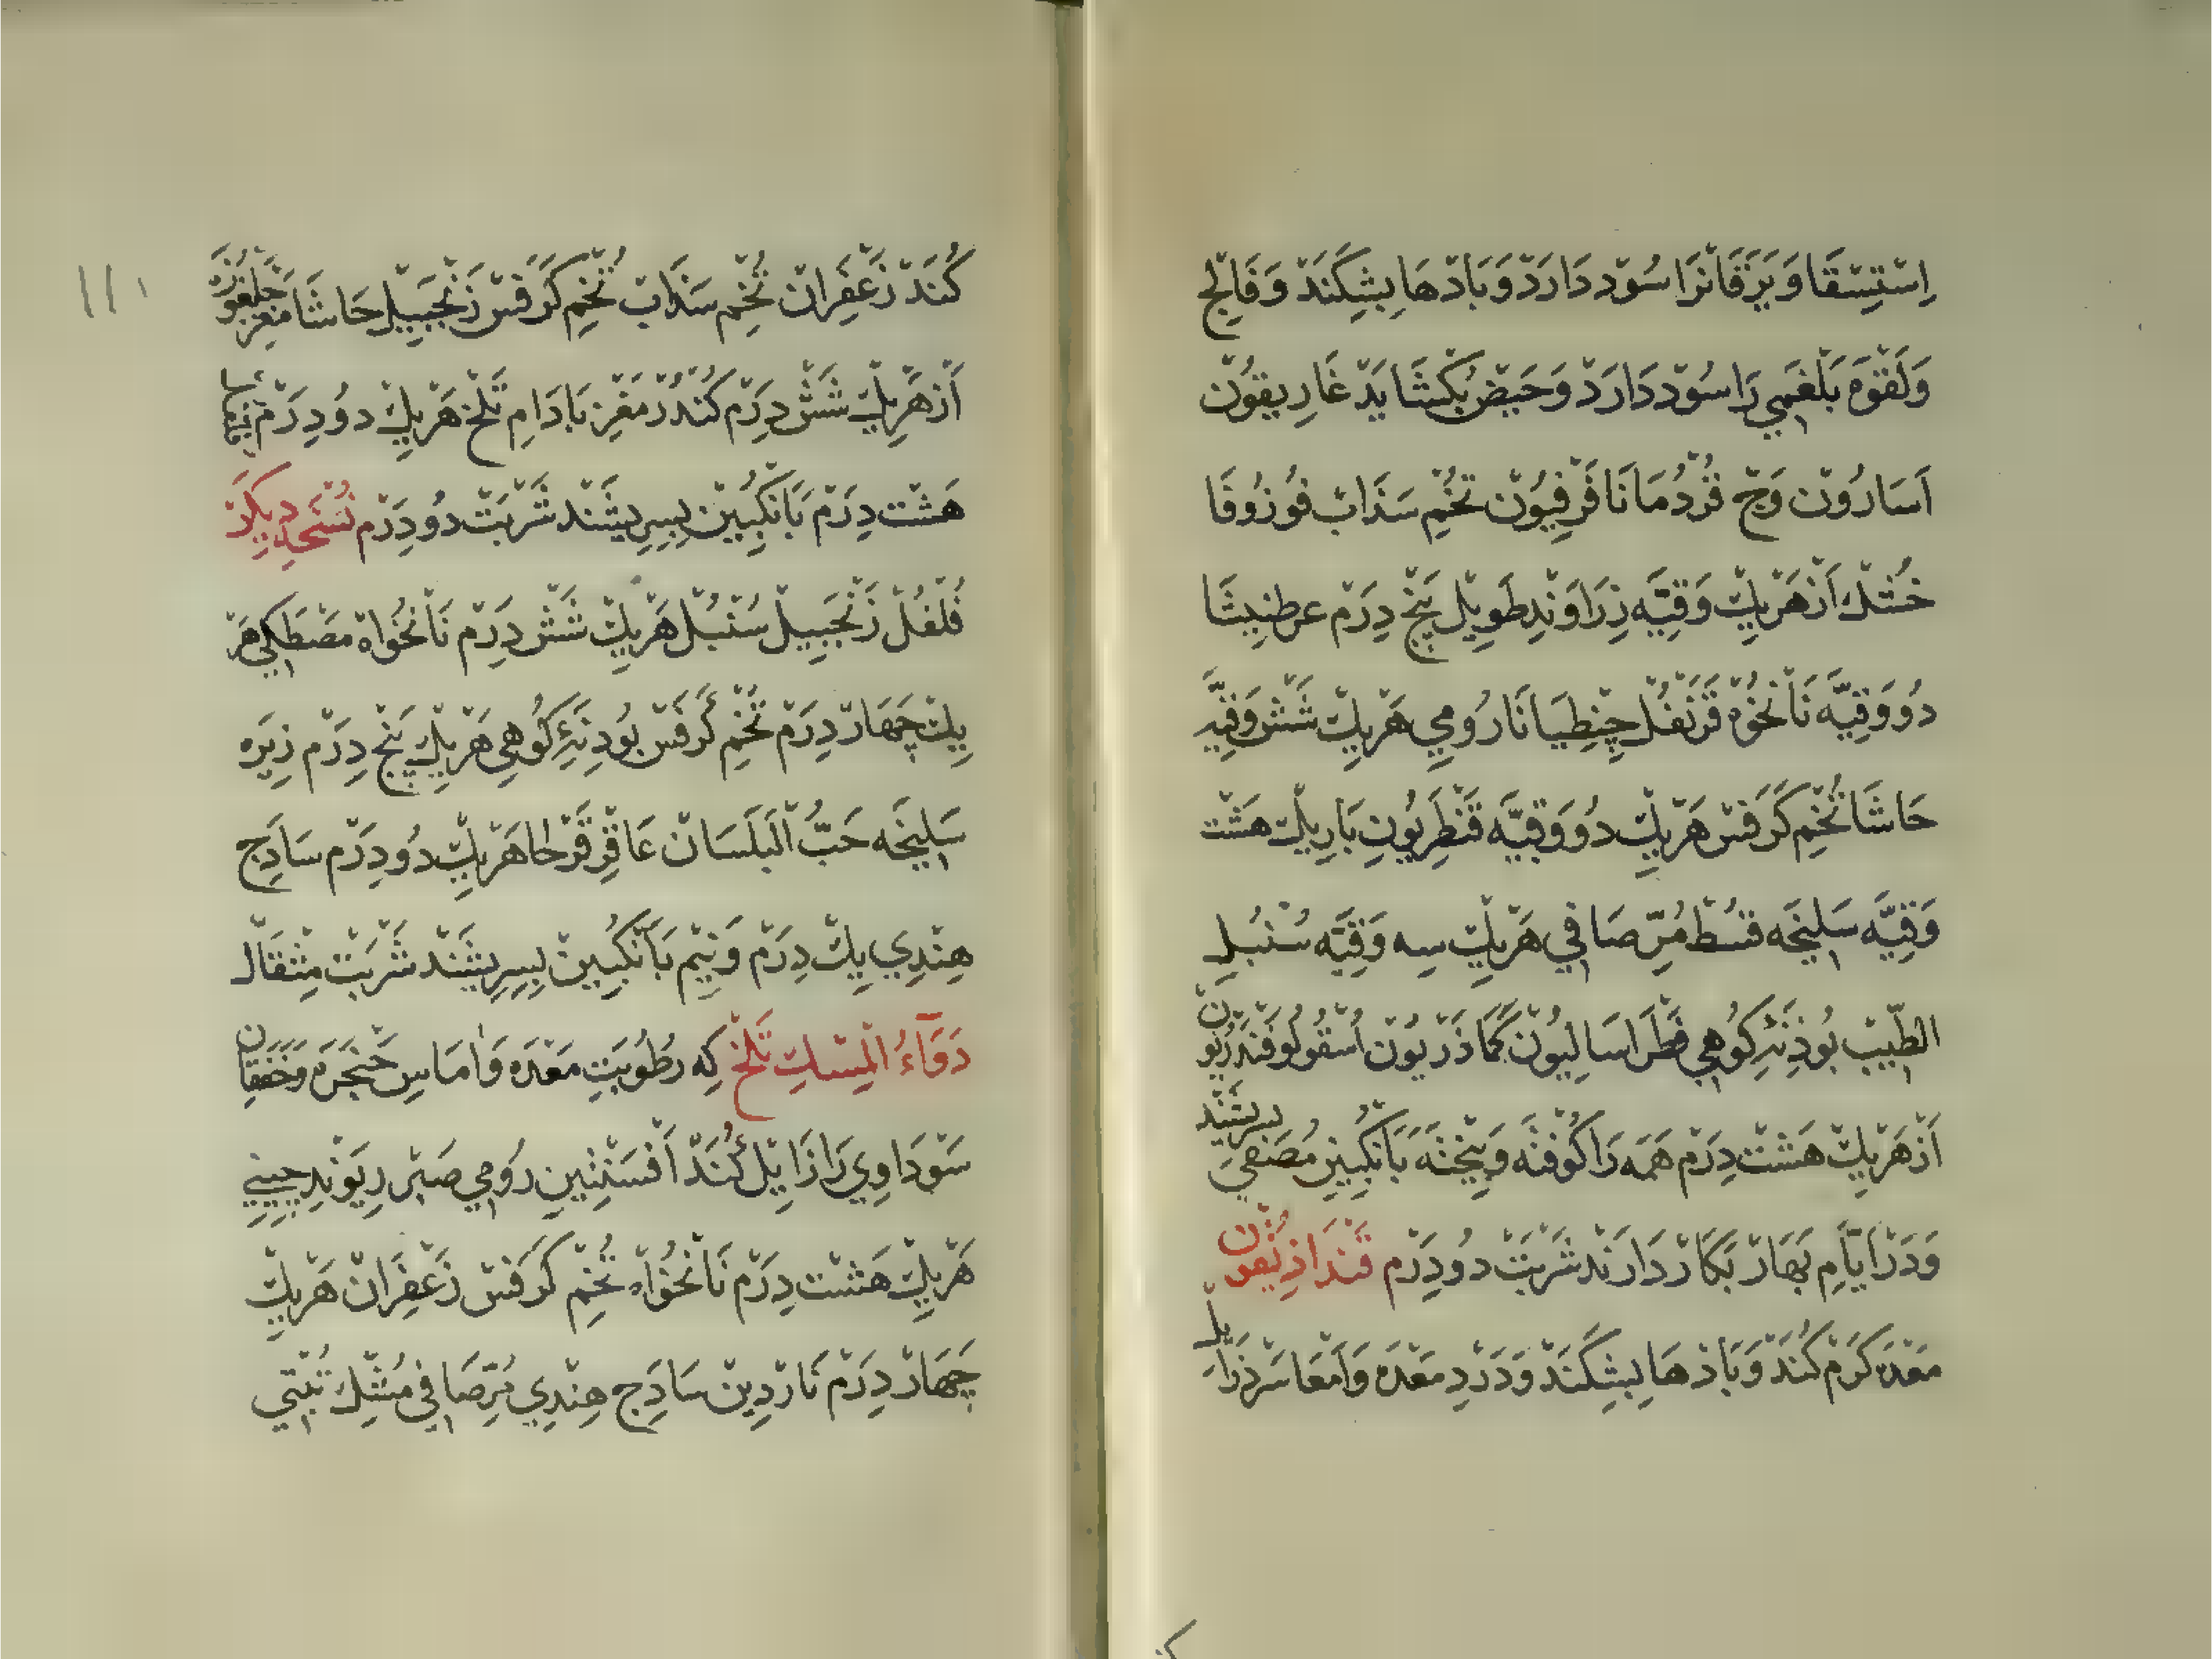 اِسْتِسْقَا وَ يَرَقَانْرَا سُوذ دَارَدْ وَ بَاذْهَا بِشِكَنَدْ وَ فَالِج
وَ لَقْوَه بَلْغَمِي رَا سُوذ دَارَدْ وَ حَيْضْ بُكْشَايَدْ غَارِيقُونْ
اَسَارُونْ وَجْ قُرْدُمَانَا فَرْفِيُونْ تُخْمِ سَذَابْ فُوْ زُوفَا
خُشْكْ اَزْ هَرْيِكْ وَقِيَّه زِرَاوَنْدِ طَوِيلْ پَنْج دِرَمْ عرطنِيثَا
دُو وَقِيَّه نَانْخُوَهْ قَرَنْفُلْ جِنْطِيَانَا رُومِي هَرْيِكْ شَشْ وَقِيَّه
حَاشَا تُخْمِ كَرَفْسْ هَرْيِكْ دُو وَقِيَّه قَنْطَرِيُونِ بَارِيكْ هَشْت
وَقِيَّه سَلِيخَه قُسْطْ مُرِّ صَافِي هَرْيِكْ سِه وَقِيَّه سُنْبُلِ
الطِّيبْ بُوذِنَهِٔ كُوهِي فَطْرَاسَالِيُونْ كَمَاذَرْيُونْ اُسْقُولُوقَنْدَرْيُونْ
اَزْ هَرْيِكْ هَشْتْ دِرَمْ هَمَه رَا كُوفْتَه وَ بِيخْتَه بَانْگبِينِ مُصَفَّي بِسِرِيشَنْد
وَ دَرْ اَيَّامِ بَهَارْ بَكَارْ دَارَنْد شَرْبَتْ دُو دِرَمْ قَنْدَاذِيْقُونْ
مَعْدَه كَرْم كُنَدْ وَ بَاذْهَا بِشِكَنَدْ وَ دَرْدِ مَعْدَه وَ اَمْعَا سَرْد زَايِلْ
كُنَدْ زَعْفِرَانْ تُخْمِ سَذَابْ تُخْمِ كَرَفْسْ زَنْجَبِيلْ حَاشَا مَغْزِ جَلْغُوزَه
اَزْ هَرْيِكْ شَشْ دِرَمْ كُنْدُرْ مَغْزِ بَادَامِ تَلْخْ هَرْيِكْ دُو دِرَمْ
هَشْت دِرَمْ بَانْگبِينْ بِسِرِيشَنْد شَرْبَتْ دُو دِرَمْ نُسْخَهِٔ دِيكَرْ
فُلْفُلْ زَنْجَبِيلْ سُنْبُلْ هَرْيِكْ شَشْ دِرَمْ نَانْخُوَاهْ مَصْطَكِي هَرْ
يِكْ چَهَارْ دِرَمْ تُخْمِ كَرَفْسْ بُوذِنَهِٔ كُوهِي هَرْيِكْ پَنْجْ دِرَمْ زِيرَه
سَلِيخَه حَبُّ الْبَلَسَانْ عَاقِرْقَرْحَا هَرْيِكْ دُو دِرَمْ سَاذَجِ
هِنْدِي يِكْ دِرَمْ وَ نِيمْ بَانْگبِينْ بِسِرِيشَنْد شَرْبَتْ مِثْقَالْ
دَوَآءُ الْمِسْكِ تَلْخْ كِه رُطُوبَتِ مَعْدَه وَ امَاسِ حَنْجَرَه وَ خَفَقَانِ
سَوْدَاوِي رَا زَايِلْ كُنَدْ اَفْسَنْتِينِ رُومِي صَبْر رِيوَنْدِ چِينِي
هَرْيِكْ هَشْت دِرَمْ نَانْخُوَاهْ تُخْمِ كَرَفْسْ زَعْفِرَانْ هَرْيِكْ
چَهَارْ دِرَمْ نَارْدِينْ سَاذَجِ هِنْدِي مُرِّ صَافِي مُشْكِ تُبَّتِي
١١١